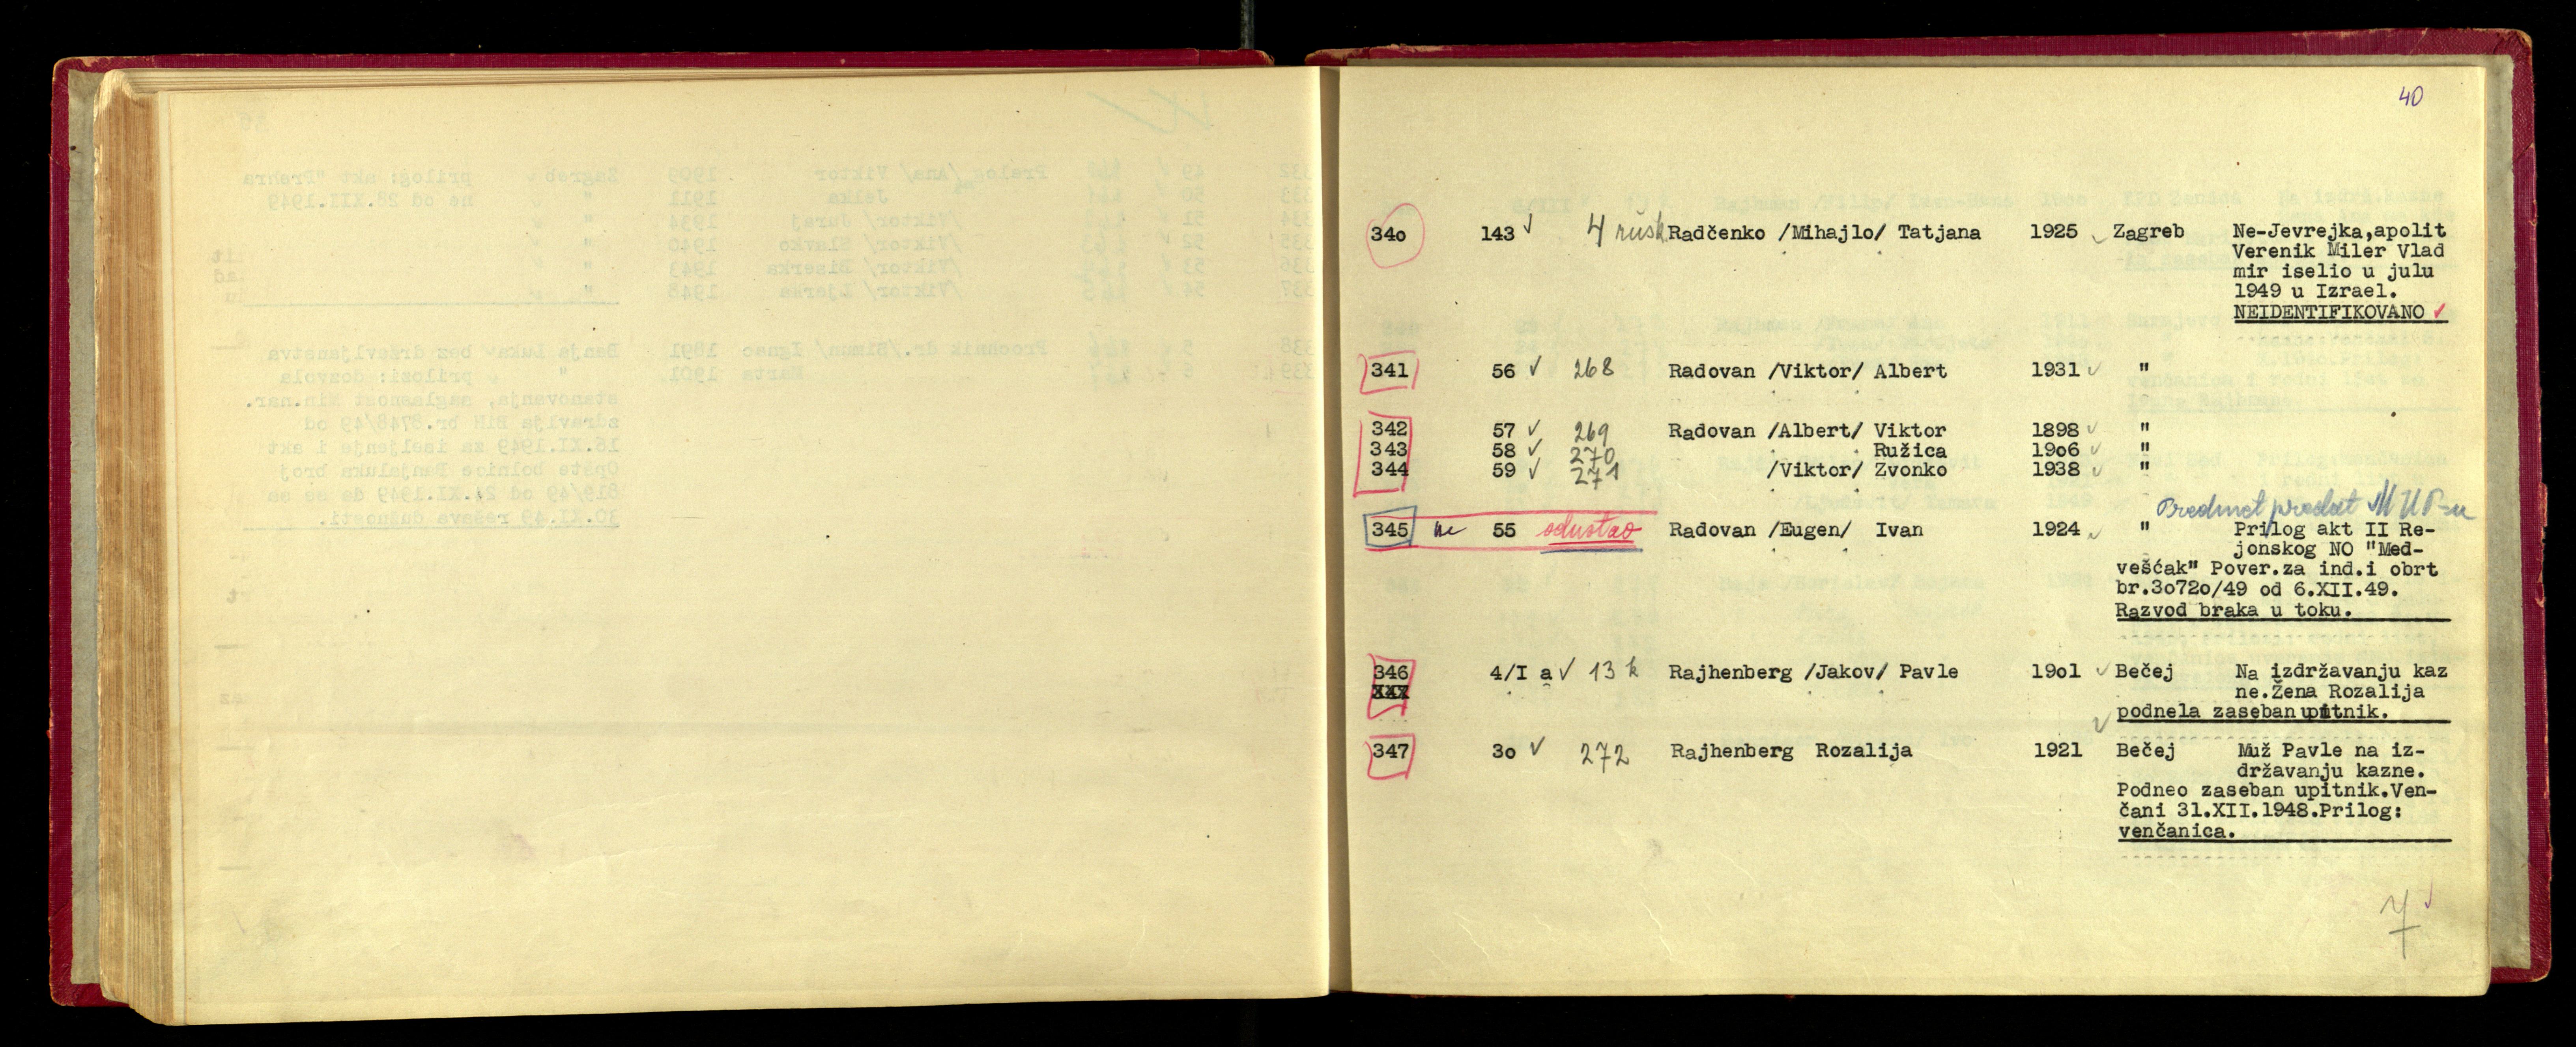 40
340 143 ✓ 4 rušk Radčenko /Mihajlo/ Tatjana 1925 ✓ Zagreb Ne-Jevrejka,apolit
Verenik Miler Vlad
mir iselio u julu
1949 u Izrael.
NEIDENTIFIKOVANO ✓
341 56 ✓ 268 Radovan /Viktor/ Albert 1931 ✓ "
342 57 ✓ 269 Radovan /Albert/ Viktor 1898 ✓ "
343 58 ✓ 270 Ružica 19o6 ✓ "
344 59 ✓ 271 /Viktor/ Zvonko 1938 ✓ "
Predmet predat MUP-u
345 ne 55 odustao Radovan /Eugen/ Ivan 1924 ✓ " Prilog akt II Re-
jonskog NO "Med-
veščak" Pover.za ind.i obrt
br.3o72o/49 od 6.XII.49.
Razvod braka u toku.
346 4/I a ✓ 13 k Rajhenberg /Jakov/ Pavle 19o1 ✓ Bečej Na izdržavanju kaz
XXX ne.Žena Rozalija
podnela zaseban upitnik.
347 3o ✓ 272 Rajhenberg Rozalija 1921 ✓ Bečej Muž Pavle na iz-
državanju kazne.
Podneo zaseban upitnik.Ven-
čani 31.XII.1948.Prilog:
venčanica.
7 ✓